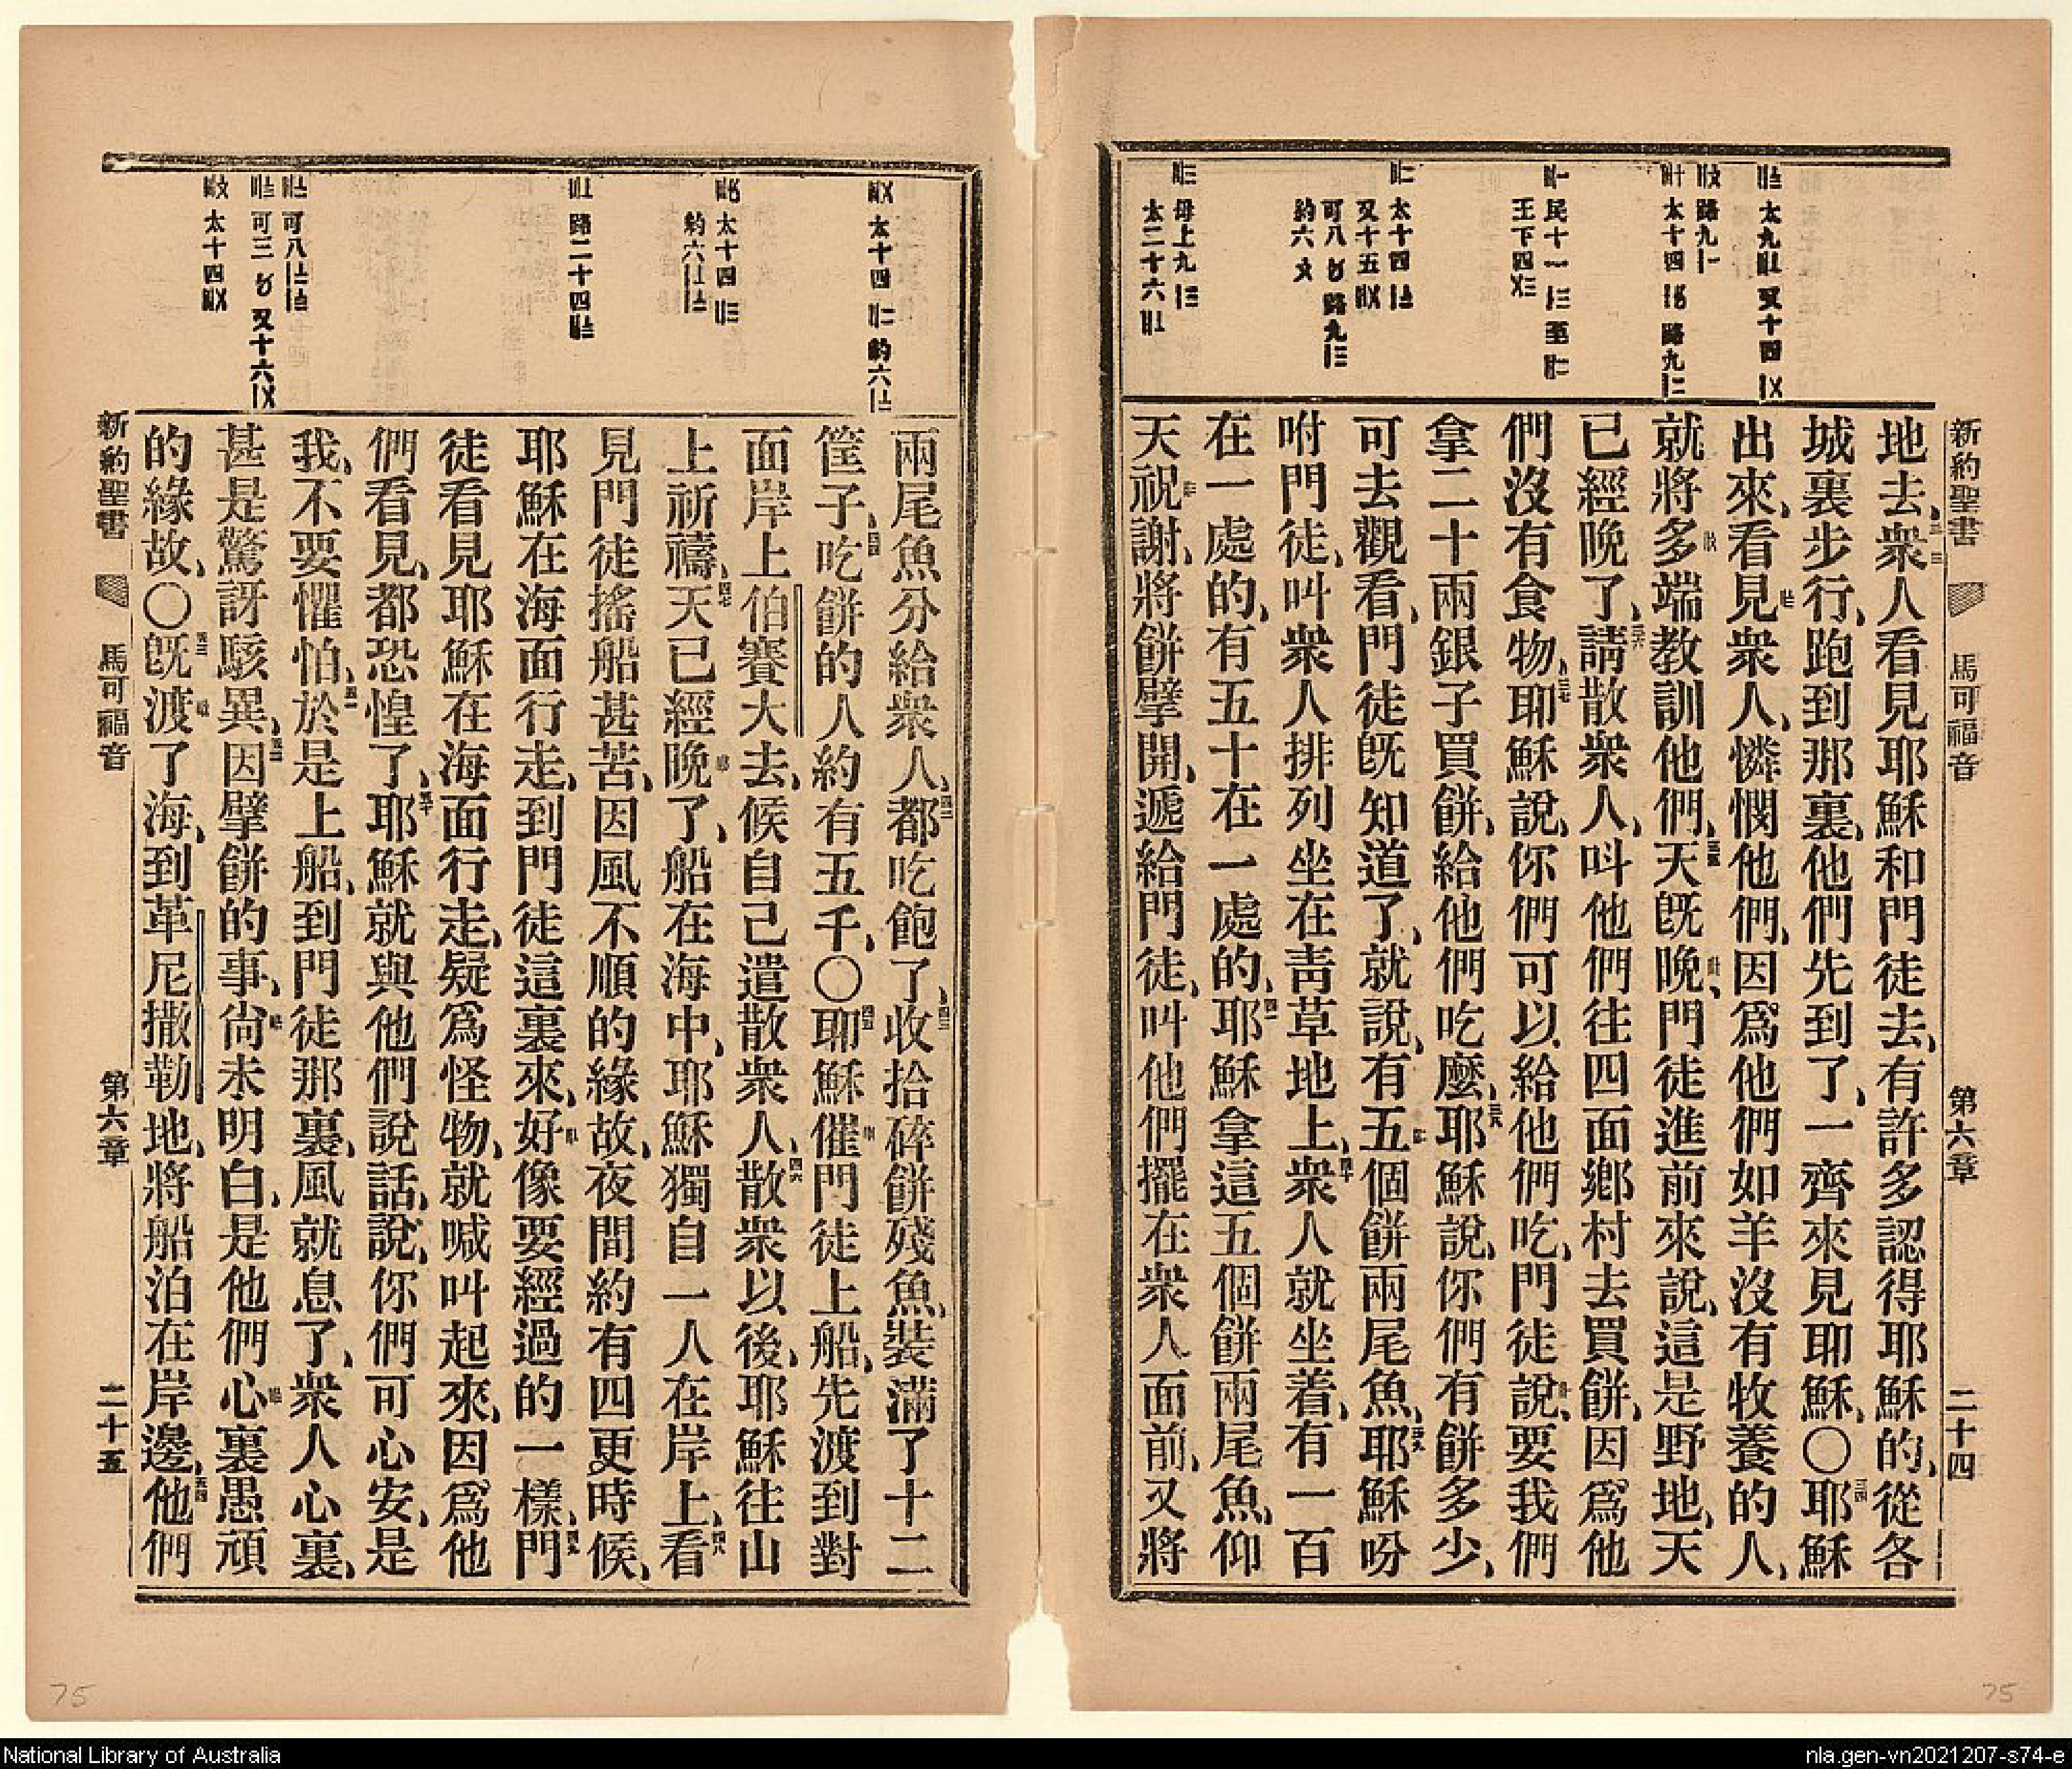 新約聖書 馬可福音 第六章 二十四
地去、衆人看見耶穌和門徒去、有許多認得耶穌的、從各
城裏步行、跑到那裏、他們先到了、一齊來見耶穌、〇耶穌
出來、看見衆人、憐憫他們、因爲他們如羊沒有牧養的人、
就將多端教訓他們、天旣晚、門徒進前來說、這是野地、天
已經晚了、請散衆人、呌他們往四面鄉村去買餅、因爲他
們沒有食物、耶穌說、你們可以給他們吃、門徒說、要我們
拿二十兩銀子買餅、給他們吃麽、耶穌說、你們有餅多少、
可去觀看、門徒旣知道了、就說、有五個餅兩尾魚、耶穌吩
咐門徒、叫衆人排列坐在青草地上、衆人就坐着、有一百
在一處的、有五十在一處的、耶穌拿這五個餅兩尾魚、仰
天祝謝、將餅擘開、遞給門徒、叫他們擺在衆人面前、又將
兩尾魚分給衆人、都吃飽了、收拾碎餅殘魚、裝滿了十二
筐子、吃餅的人約有五千、〇耶穌催門徒上船、先渡到對
面岸上伯賽大去、候自己遣散衆人、散衆以後、耶穌往山
上祈禱、天已經晚了、船在海中、耶穌獨自一人在岸上、看
見門徒搖船甚苦、因風不順的緣故、夜間約有四更時候、
耶穌在海面行走、到門徒這裏來、好像要經過的一樣、門
徒看見耶穌在海面行走、疑爲怪物、就喊叫起來、因爲他
們看見、都恐惶了、耶穌就與他們說話、說、你們可心安、是
我、不要懼怕、於是上船、到門徒那裏、風就息了、衆人心裏、
甚是驚訝駭異、因擘餅的事、尙未明白、是他們心裏愚頑
的緣故、〇旣渡了海、到革尼撒勒地、將船泊在岸邊、他們
新約聖書 馬可福音 第六章 二十五
75
75
National Library of Australia
nla.gen-vn2021207-s74-e